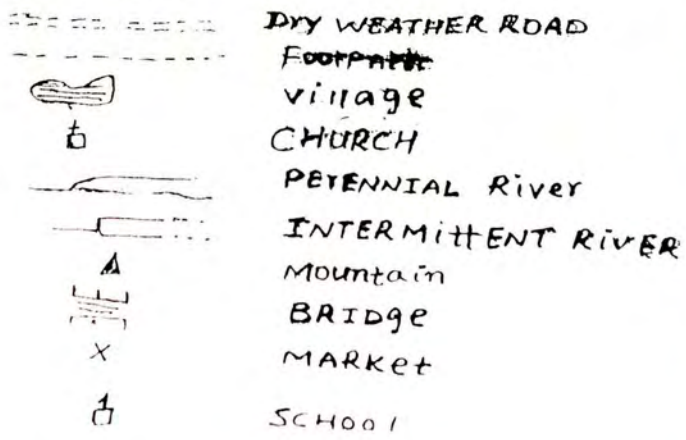 Dry WEATHER ROAD
Footpath
village
CHURCH
PERENNIAL River
INTERMittENT RiVER
Mountain
BRIDge
MARKet
SCHOOl